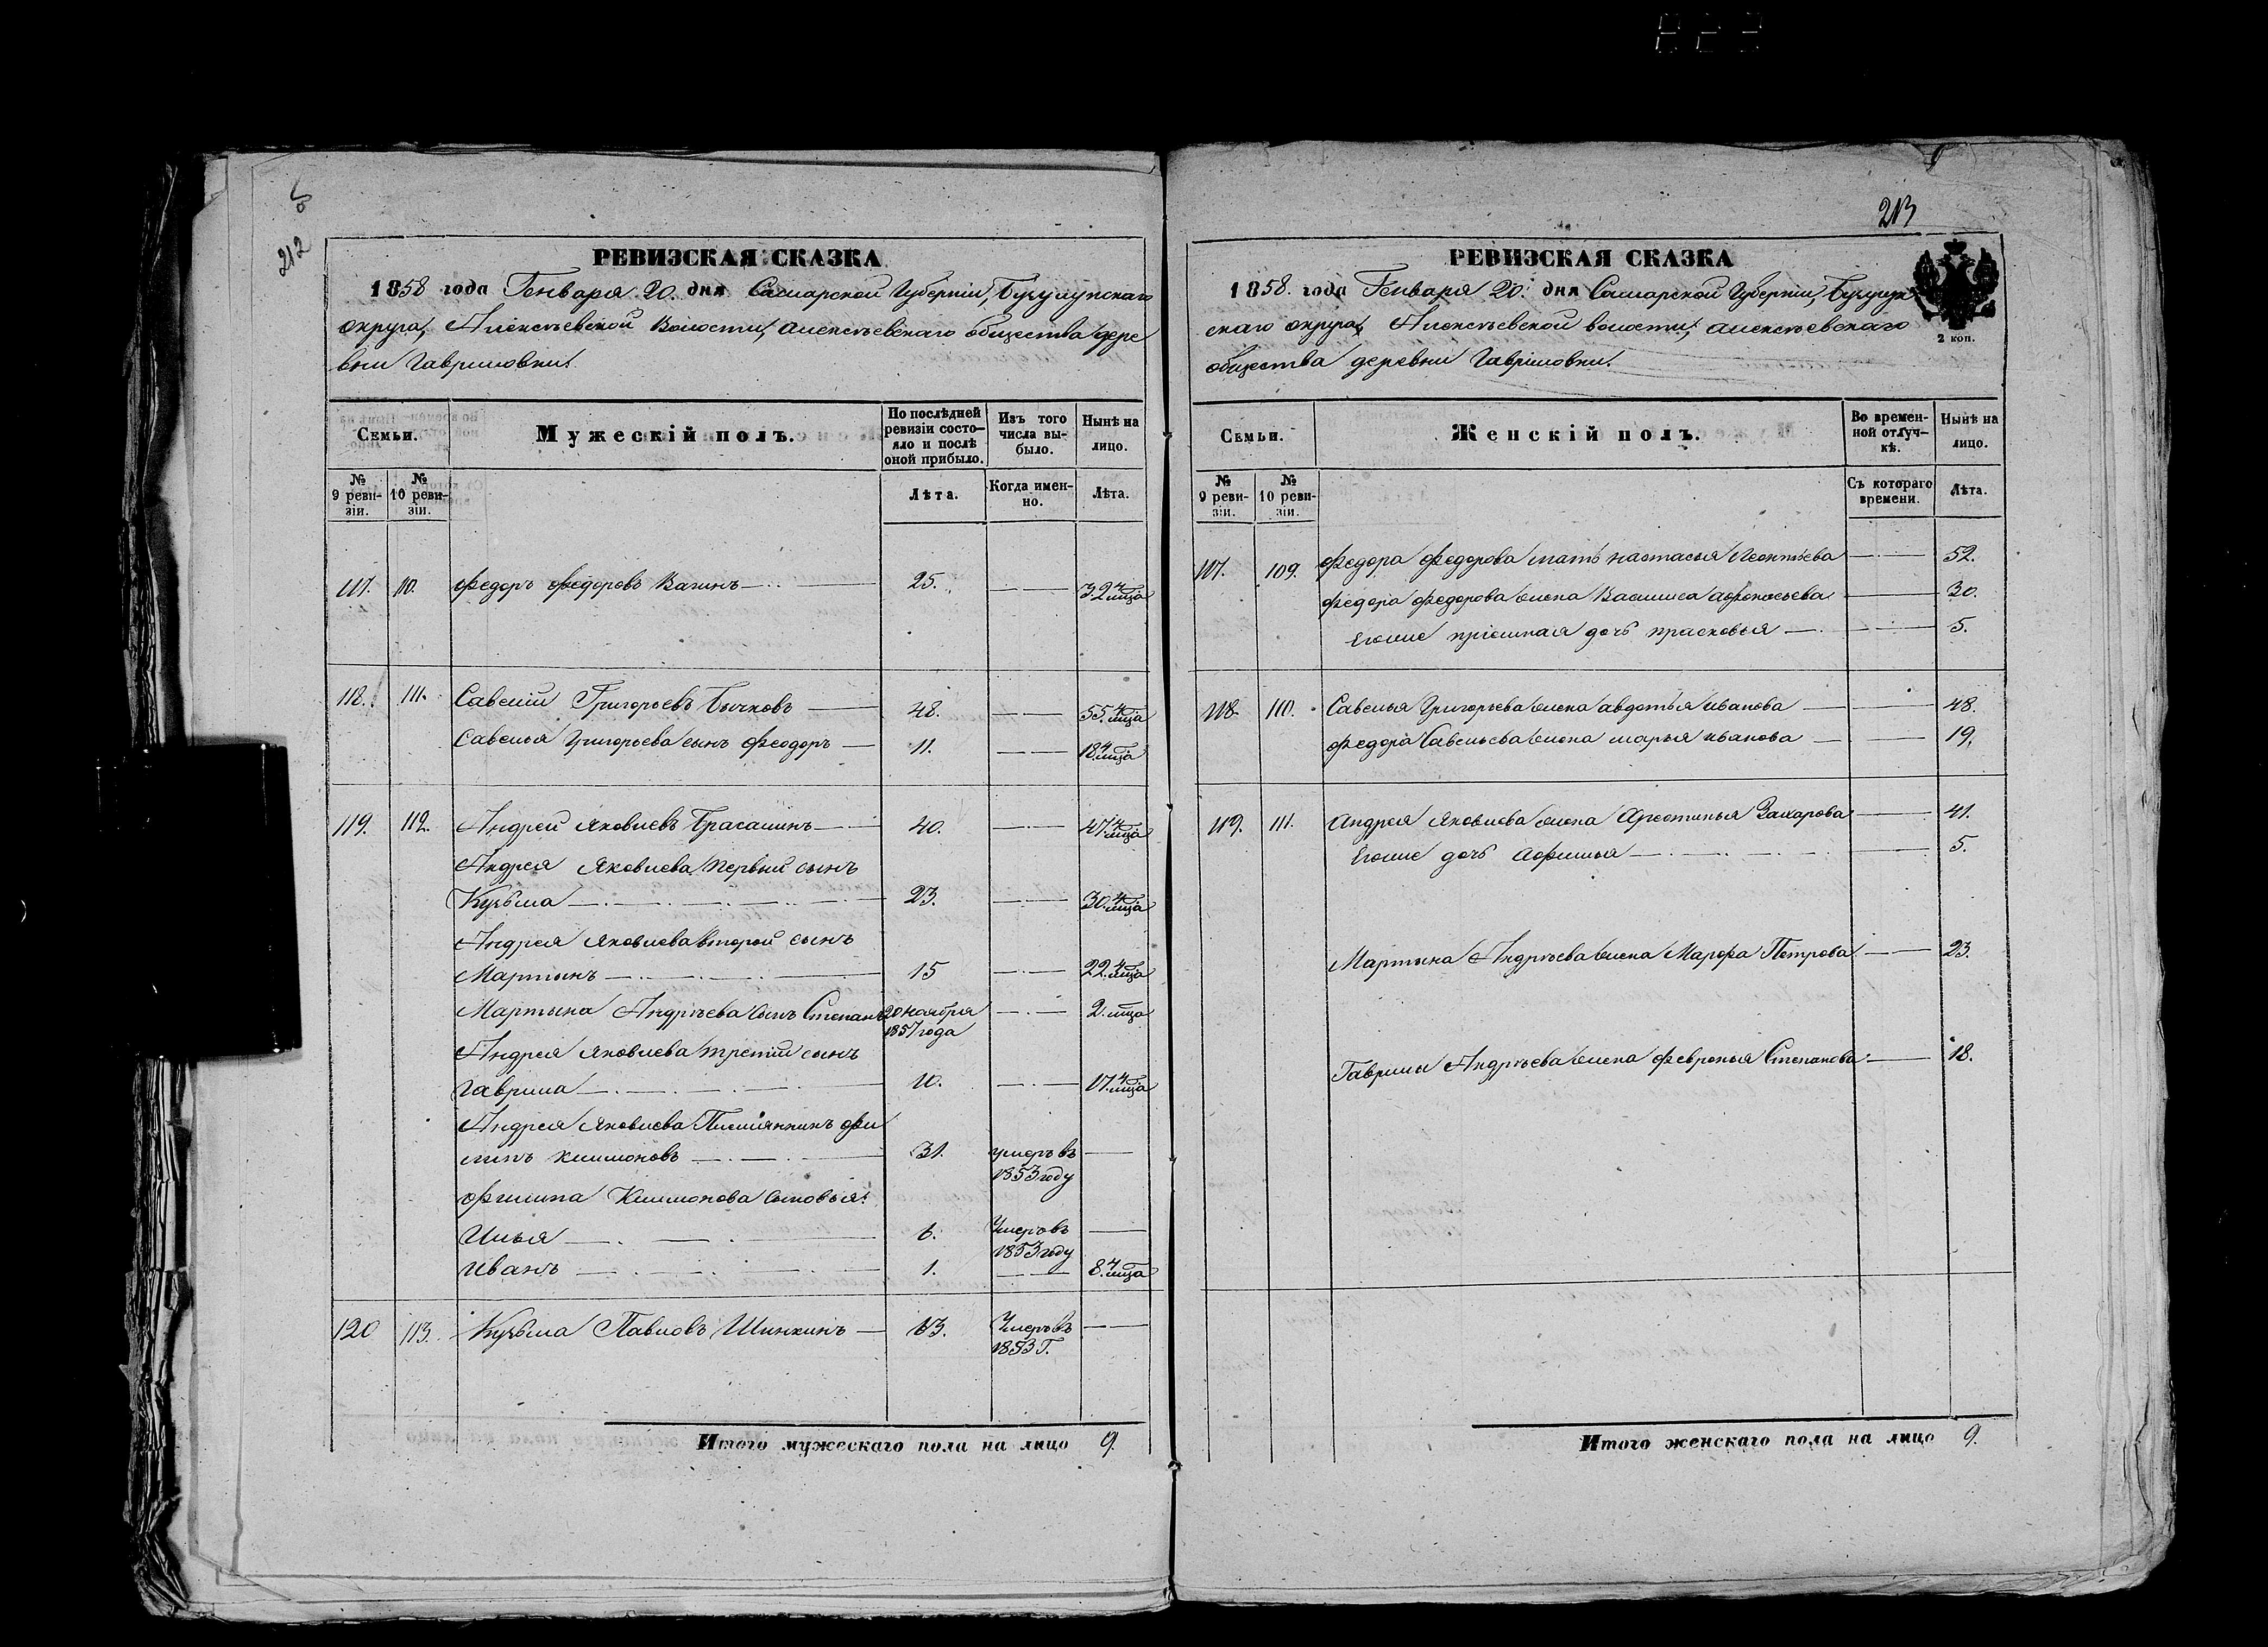 212
РЕВИЗСКАЯ СКАЗКА
1858 года Генваря 20. дня Самарской Губерніи, Бузулукскаго
округа, Алексѣевской Волости, Алексѣевскаго общества дере
вни Гавриловки.
Семьи.
Мужескій полъ.
По послѣдней ревизіи состояло и послѣ оной прибыло.
Изъ того числа выбыло.
Нынѣ на лицо.
№ 9 ревизіи.
№ 10 ревизіи.
Лѣта.
Когда именно.
Лѣта.
117. 110. Федоръ Федоровъ 25. 32 4/мца
118. 111. Савелій Григорьевъ Бычковъ 48. 55. 4/мца
Савелья Григорьева сынъ Феодоръ 11. 18. 4/мца
119. 112. Андрей Яковлевъ 40. 47. 4/мца
Андрея Яковлева первый сынъ
Кузьма 23. 30. 4/мца
Андрея Яковлева второй сынъ
Мартынъ 15 22. 4/мца
Мартына Андрѣева сынъ Степанъ 20 Ноября 2. мца
1857 года
Андрея Яковлева третій сынъ
Гаврила 10. 17. 4/мца
Андрея Яковлева Племянникъ Фи
липъ Климоновъ 31. умеръ въ
1853 году
Филипа Климонова сыновья:
Илья 6. Умеръ въ
1853 году
Иванъ 1. 8. 4/мца
120 113. Кузьма Павловъ Шинкинъ Умеръ въ
1853 Г.
Итого мужескаго пола на лицо 9.
213
РЕВИЗСКАЯ СКАЗКА
1858. года Генваря 20. дня Самарской Губерніи, Бузулук
скаго округа, Алексѣевской волости, Алексѣевскаго
общества деревни Гавриловки.
2 коп.
Семьи.
Женскій полъ.
Во временной отлучкѣ.
Нынѣ на лицо.
№ 9 ревизіи.
№ 10 ревизіи.
Съ котораго времени.
Лѣта.
117. 109. Федора Федорова мать Настасья Леонтьева 52.
Федора Федорова жена Василиса Афонасьева 30.
Егоже пріемная дочь Прасковья 5.
118. 110. Савелья Григорьева жена Авдотья Иванова 48.
Федора Савельева жена Марья Иванова 19.
119. 111. Андрея Яковлева жена Захарова 41.
Егоже дочь Афимья 5.
Мартына Андрѣева жена Марфа Петрова 23.
Гаврилы Андрѣева жена Февронья Степанова 18.
Итого женскаго пола на лицо 9.